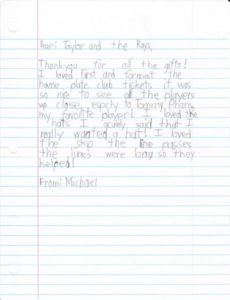 Dear: Taylor and the Rays,
Thank you for all the gifts!
I loved first and foremost the
home plate club tickets it was
so nice to see all the players
up close, espcly to Tommy Pham,
my favorite player! I loved the
hats I said that I
really wanted a hat! I loved
the skip the line passes
the lines were long so they
helped!
From: Michael